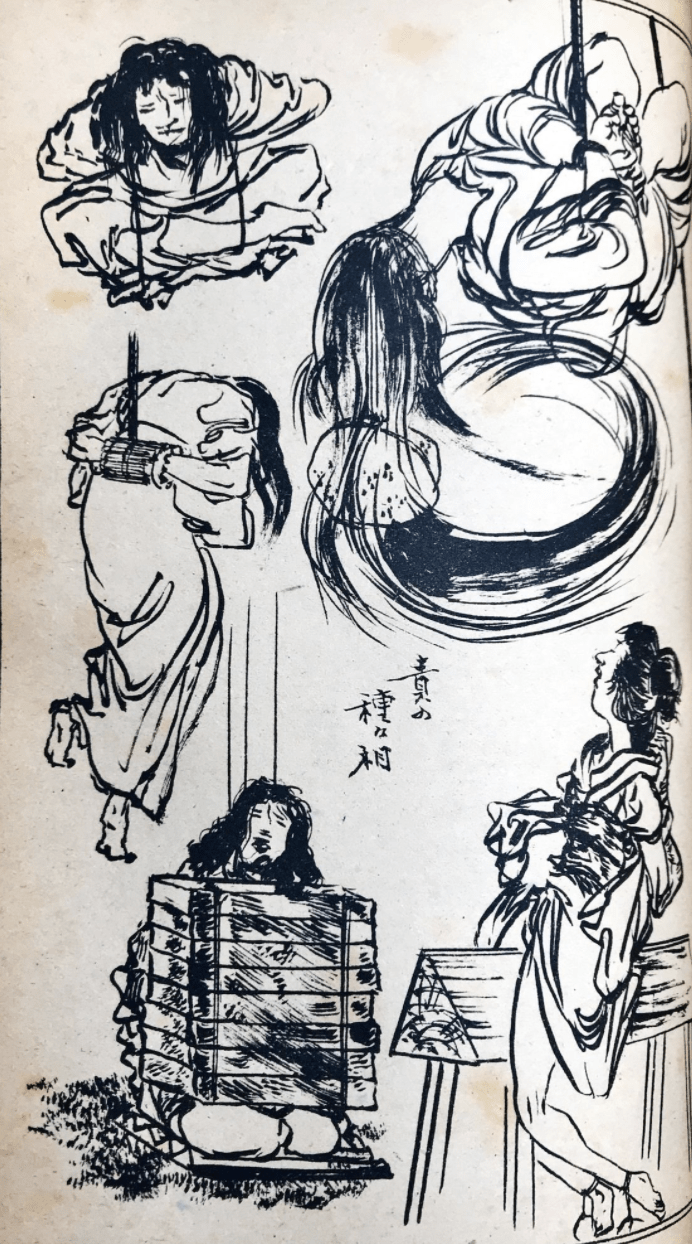 責の
種々相